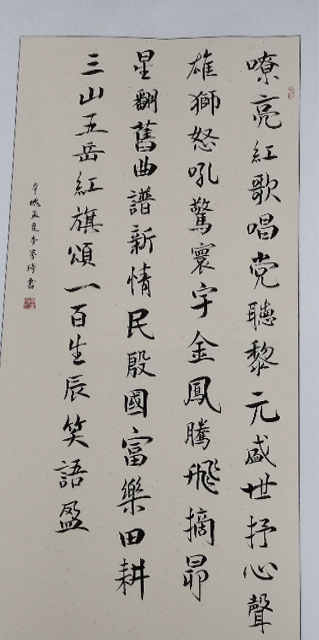 嘹亮紅歌唱党聽黎元盛世抒心聲
雄獅怒吼驚寰宇金鳳騰飛摘昴
星翻舊曲譜新情民殷國富樂田耕
三山五岳紅旗頌一百生辰笑語盈